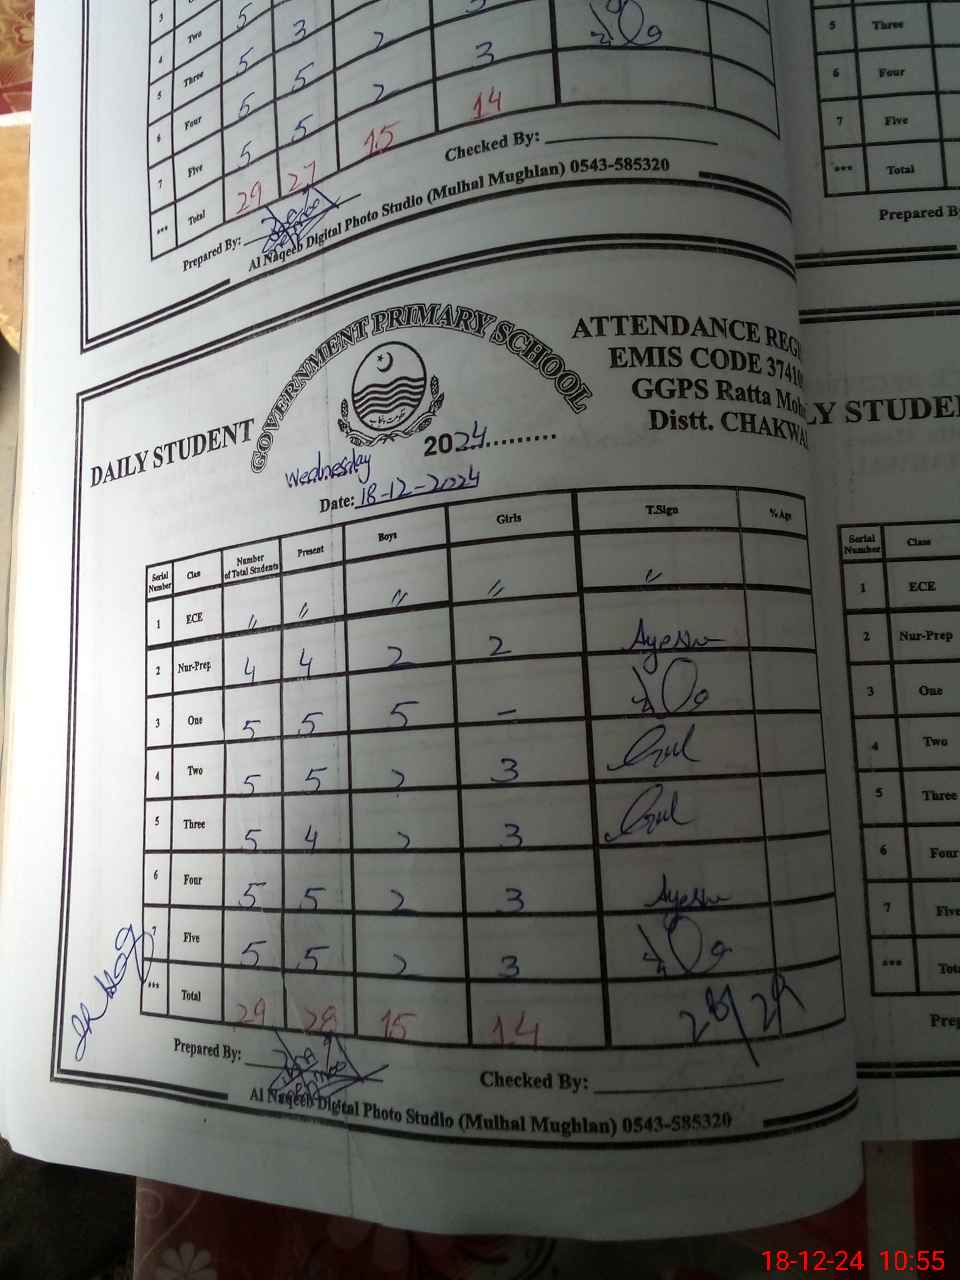 3 5
4 Two 5 3 2 3
5 Three 5 5 2 3
6 Four 5 5
7 Five 5
*** Total 29 27 15 14
Prepared By: Checked By:
Al Naqeeb Digital Photo Studio (Mulhal Mughlan) 0543-585320
DAILY STUDENT GOVERNMENT PRIMARY SCHOOL ATTENDANCE REGI
EMIS CODE 37410
GGPS Ratta Moh
Distt. CHAKWA
2024..........
Wednesday
Date: 18-12-2024
Serial Number Class Number of Total Students Present Boys Girls T.Sign % Age
1 ECE " " " " "
2 Nur-Prep 4 4 2 2 Ayesha
3 One 5 5 5 -
4 Two 5 5 2 3 Gul
5 Three 5 4 2 3 Gul
6 Four 5 5 2 3 Ayesha
7 Five 5 5 2 3
*** Total 29 28 15 14 28/29
Prepared By: Checked By:
Al Naqeeb Digital Photo Studio (Mulhal Mughlan) 0543-585320
5 Three
6 Four
7 Five
*** Total
Prepared B
LY STUDE
Serial Number Class
1 ECE
2 Nur-Prep
3 One
4 Two
5 Three
6 Four
7 Five
*** Tot
Prep
18-12-24 10:55